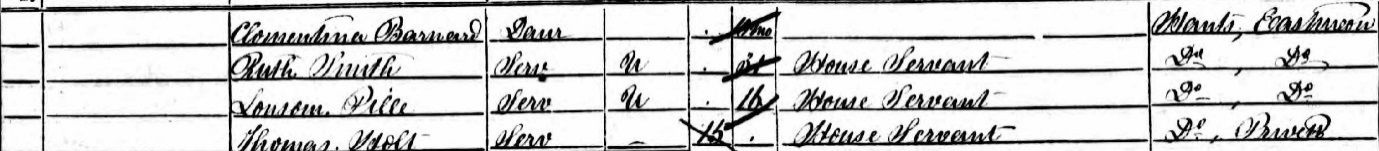 Clementina Barnard Daur mo Hants, Eastmeon
Ruth Smith Serv U 21 House Servant Do, Do
Serv U 16 House Servant Do, Do
Thomas Holt Serv — 15 House Servant Do, Privett